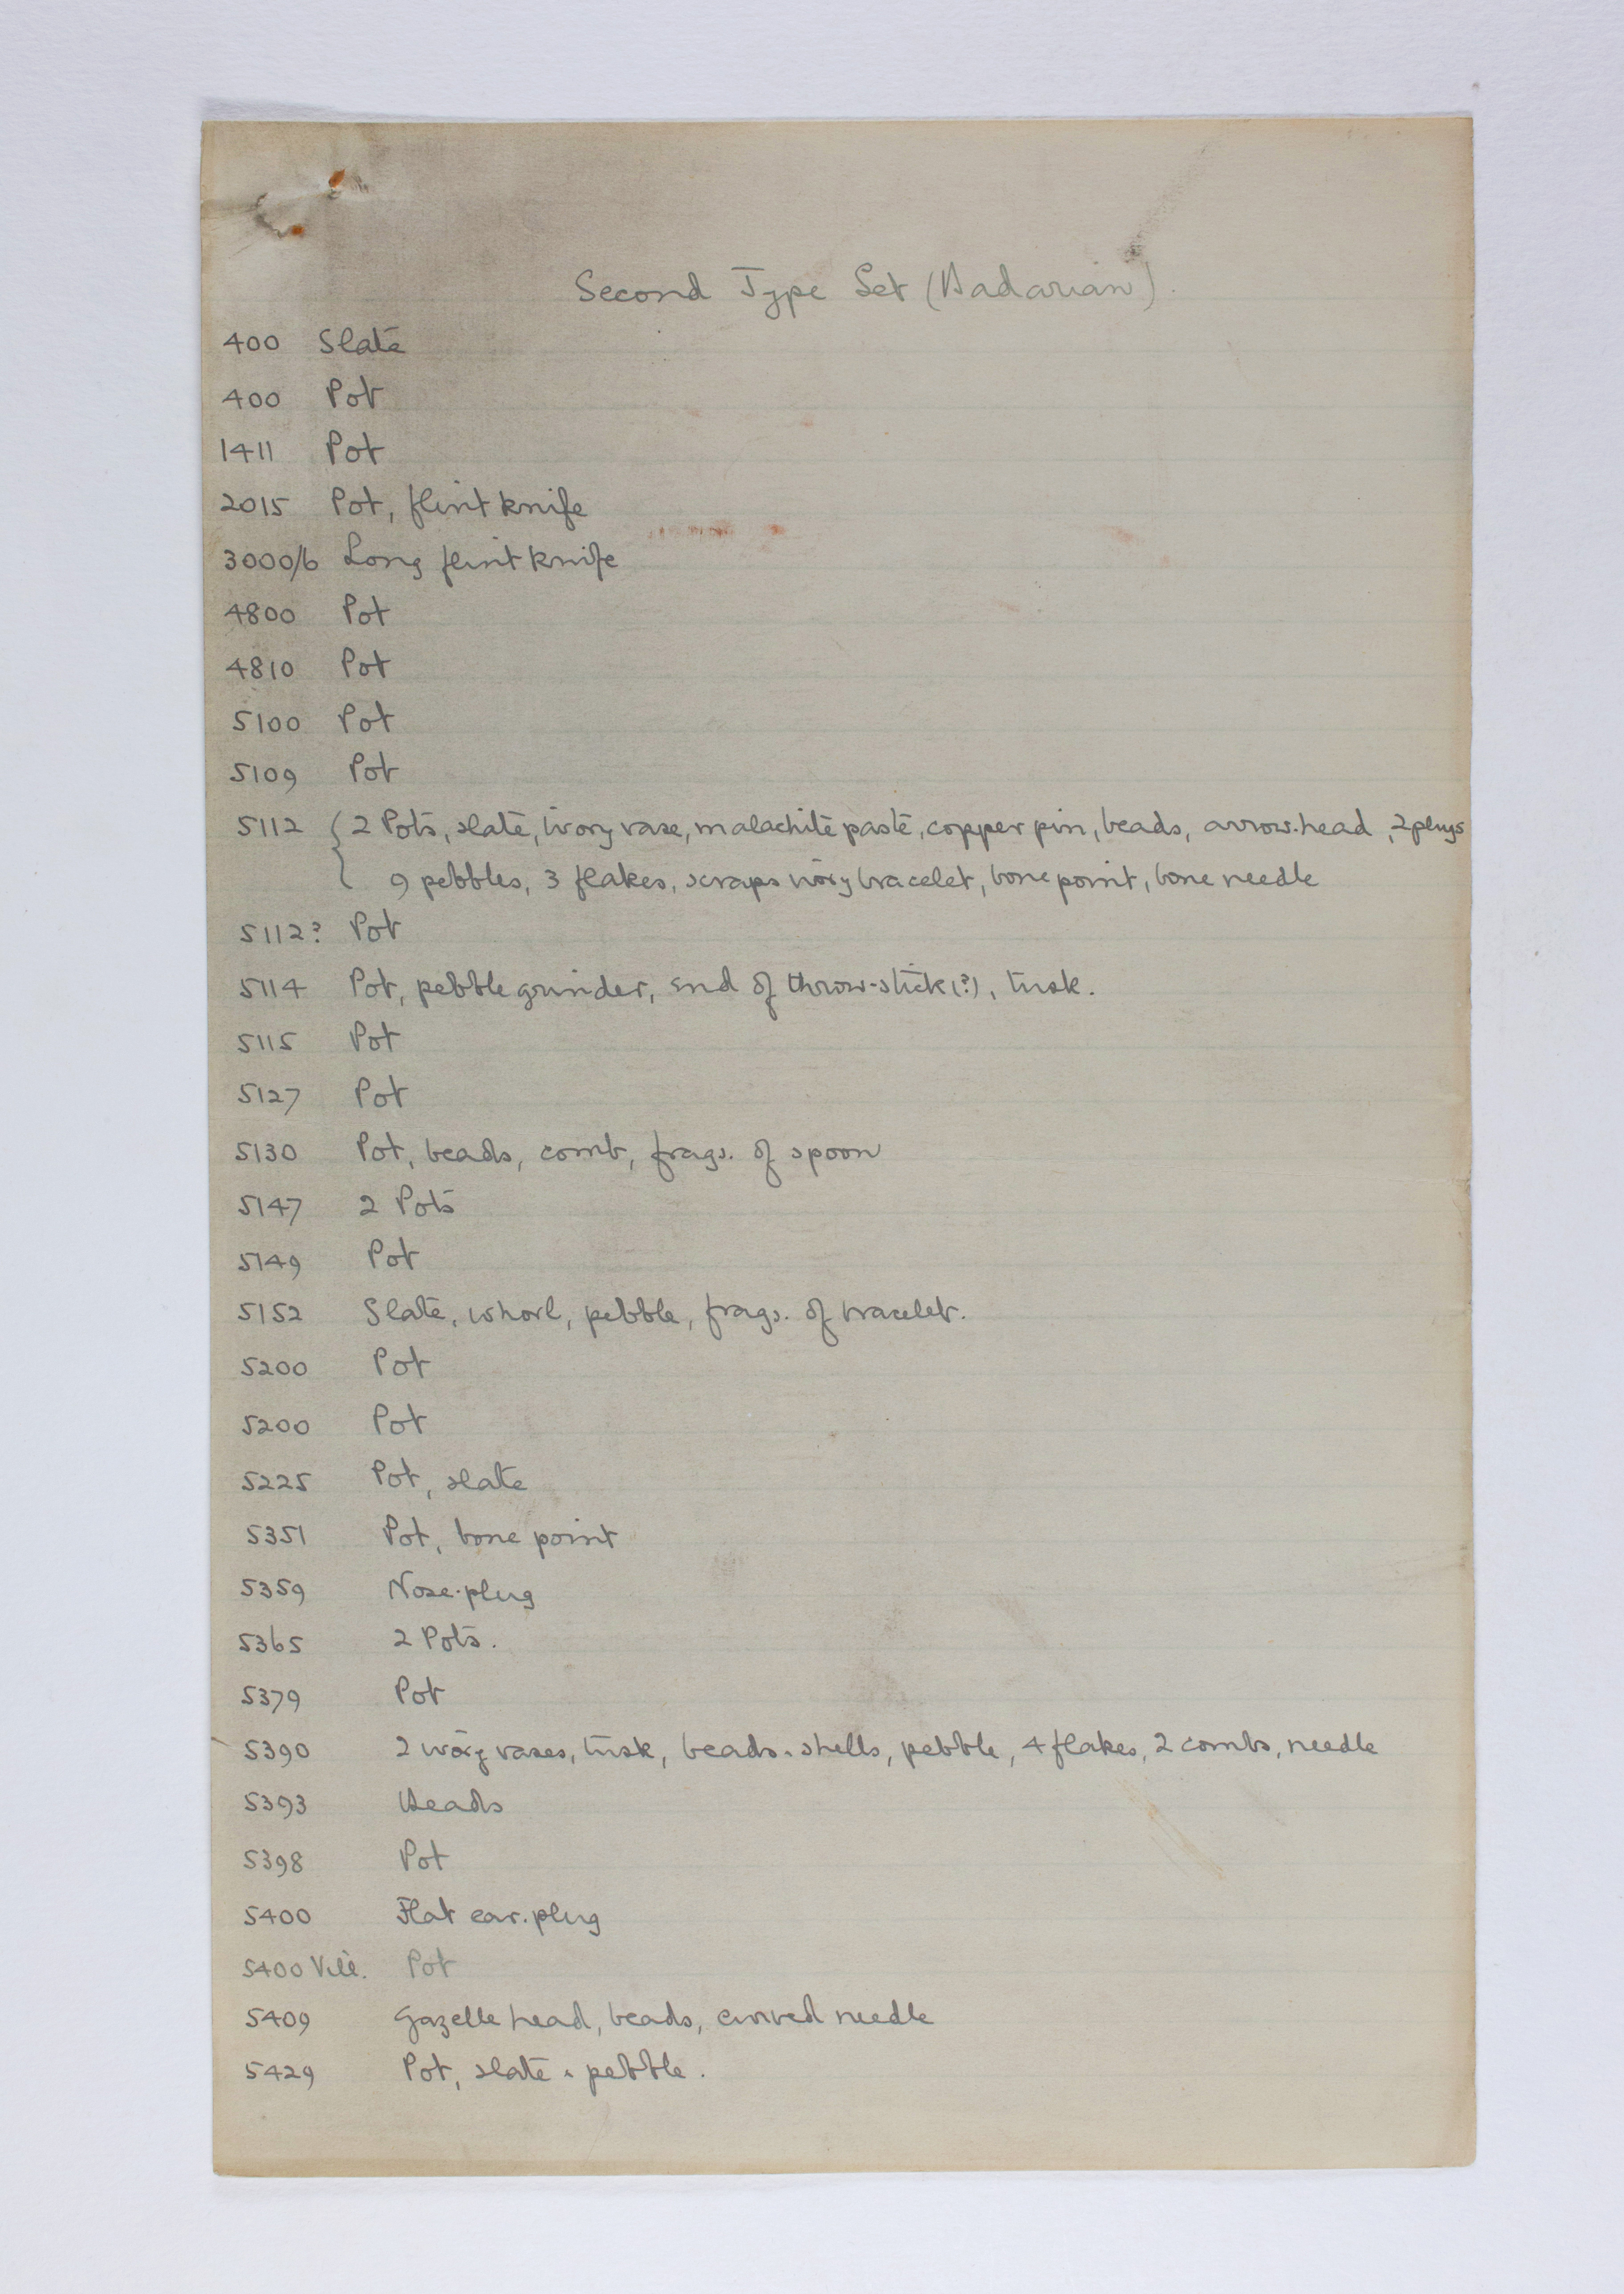 Second Type Set (Badarian).
400 Slate
400 Pot
1411 Pot
2015 Pot, flint knife
3000/6 Long flint knife
4800 Pot
4810 Pot
5100 Pot
5109 Pot
5112 { 2 Pots, slate, ivory vase, malachite paste, copper pin, beads, arrow-head, 2 plugs
9 pebbles, 3 flakes, scraps ivory bracelet, bone point, bone needle
5112? Pot
5114 Pot, pebble grinder, end of throw-stick (?), tusk.
5115 Pot
5127 Pot
5130 Pot, beads, comb, frags. of spoon
5147 2 Pots
5149 Pot
5152 Slate, whorl, pebble, frags. of bracelet.
5200 Pot
5200 Pot
5225 Pot, slate
5351 Pot, bone point
5359 Nose-plug
5365 2 Pots.
5379 Pot
5390 2 ivory vases, tusk, beads & shells, pebble, 4 flakes, 2 combs, needle
5393 Beads
5398 Pot
5400 Flat ear-plug
5400 Vill. Pot
5409 Gazelle head, beads, curved needle
5429 Pot, slate & pebble.